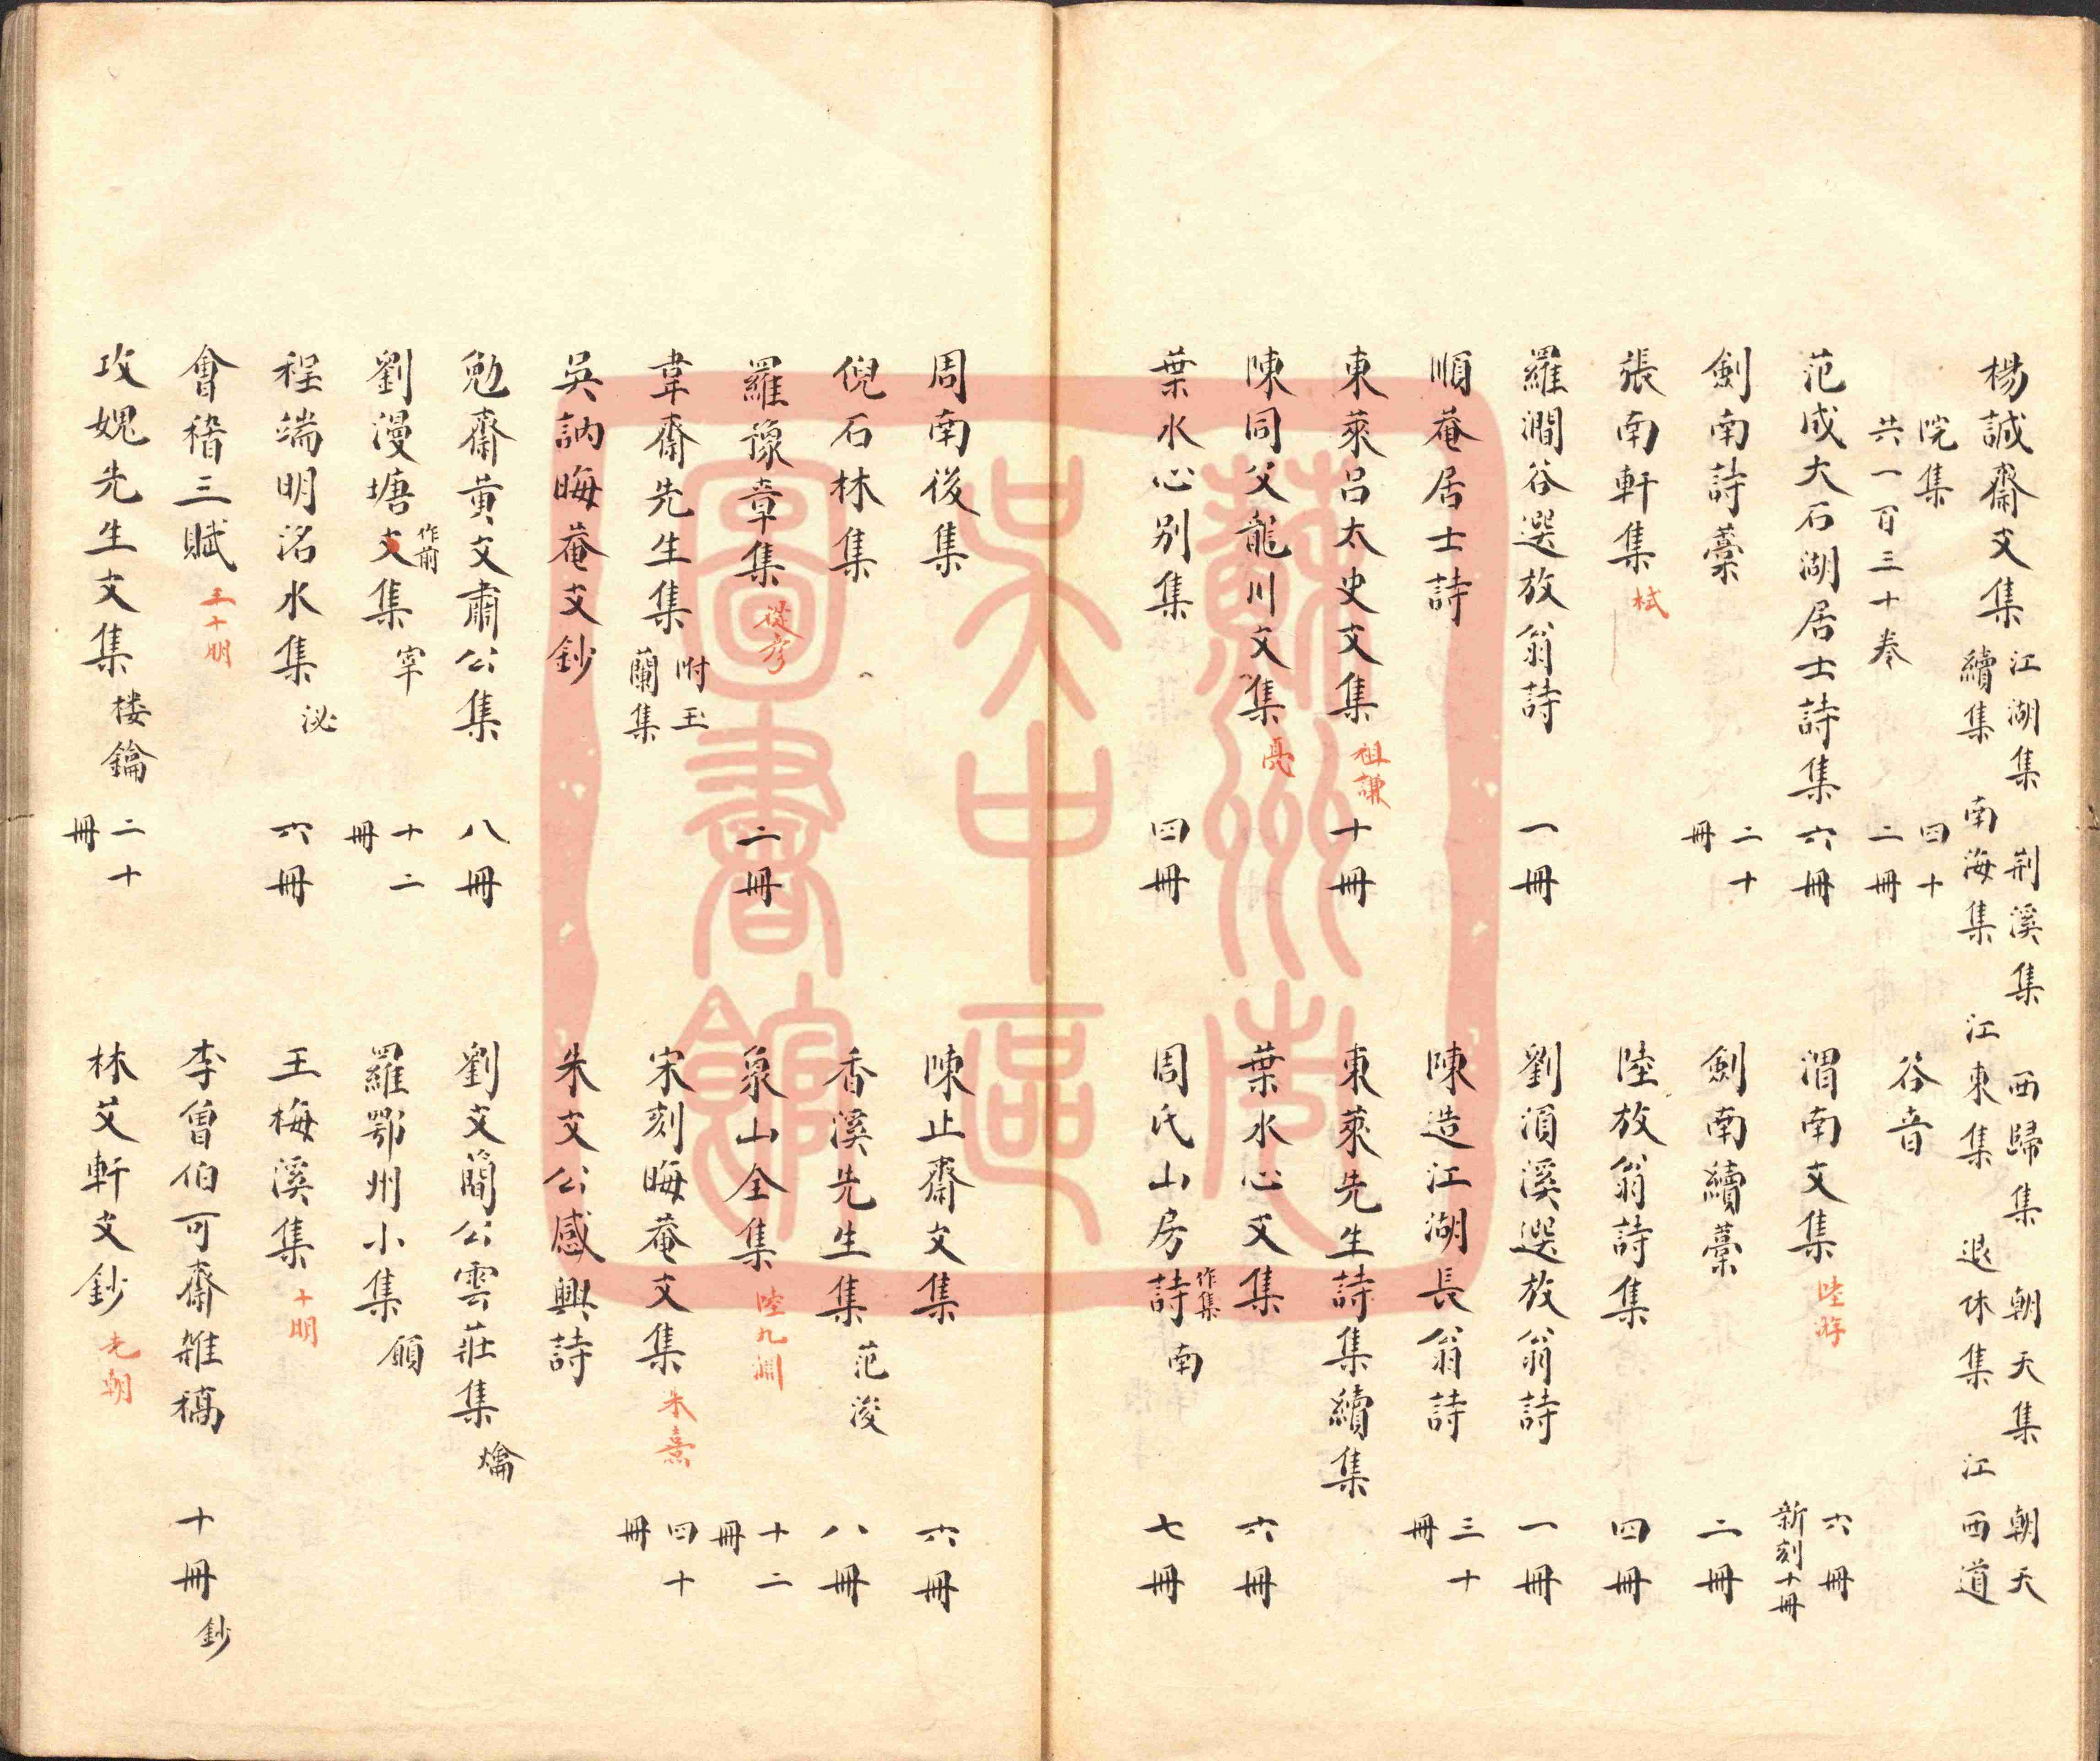 楊誠齋文集 江湖集 荆溪集 西歸集 朝天集 朝天
續集 南海集 江東集 退休集 江西道
院集 四十
共一百三十卷 二冊
谷音
范成大石湖居士詩集 六冊
渭南文集 陸游 六冊
新刻十冊
劍南詩藁 二十冊
劍南續藁 二冊
張南軒集 栻
陸放翁詩集 四冊
羅澗谷選放翁詩 一冊
劉湏溪選放翁詩 一冊
順菴居士詩
陳造江湖長翁詩 三十冊
東萊呂太史文集 祖謙 十冊
東萊先生詩集續集
陳同父龍川文集 亮
葉水心文集 六冊
葉水心別集 四冊
周氏山房詩 作集 南 七冊
周南後集
陳止齋文集 六冊
倪石林集
香溪先生集 范浚 八冊
羅豫章集 從彥 二冊
象山全集 陸九淵 十二冊
韋齋先生集 附玉蘭集
宋刻晦菴文集 朱熹 四十冊
吳訥晦菴文鈔
朱文公感興詩
勉齋黄文肅公集 八冊
劉文簡公雲莊集 爚
劉漫塘文集 作前 宰 十二冊
羅鄂州小集 願
程端明洺水集 泌 六冊
王梅溪集 十朋
會稽三賦 王十朋
李曾伯可齋雜稿 十冊 鈔
攻媿先生文集 楼鑰 二十冊
林艾軒文鈔 光朝
蘇州市
吴中區
圖書館